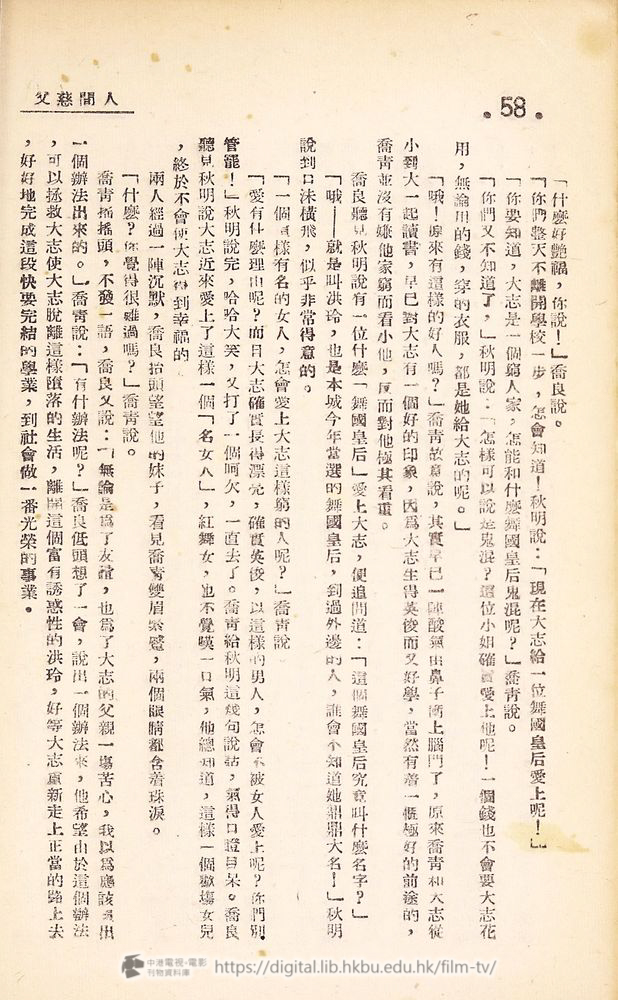 人間慈父
•58•
「什麼好艷福，你說！」喬良說。
「你們整天不離開學校一步，怎會知道！秋明說：「現在大志給一位舞國皇后愛上呢！」
「你要知道，大志是一個窮人家，怎能和什麼舞國皇后鬼混呢？」喬靑說。
「你們又不知道了，」秋明說：「怎樣可以說是鬼混？這位小姐確實愛上他呢！一個錢也不會要大志花
用，無論用的錢，穿的衣服，都是她給大志的呢。」
「哦！原來有這樣的好人嗎？」喬靑故意說，其實早已一陣酸氣由鼻子衝上腦門了，原來喬靑和大志從
小到大一起讀書，早已對大志有一個好的印象，因爲大志生得英俊而又好學，當然有着一個極好的前途的，
喬靑並沒有嫌他家窮而看小他，反而對他極其看重。
喬良聽見秋明說有一位什麼「舞國皇后」愛上大志，便追問道：「這個舞國皇后究竟叫什麼名字？」
「哦——就是叫洪玲，也是本城今年當選的舞國皇后，到過外邊的人，誰會不知道她鼎鼎大名！」秋明
說到口沫橫飛，似乎非常得意的。
「一個這樣有名的女人，怎會愛上大志這樣窮的人呢？」喬靑說
「愛有什麼理由呢？而且大志確實長得漂亮，確實英俊，以這樣的男人，怎會不被女人愛上呢？你們別
管罷！」秋明說完，哈哈大笑，又打了一個呵欠，一直去了。喬靑給秋明這幾句說話，氣得口瞪目呆。喬良
聽見秋明說大志近來愛上了這樣一個「名女人」，紅舞女，也不覺嘆一口氣，他總知道，這樣一個歡塲女兒
，終於不會使大志得到幸福的
兩人經過一陣沉默，喬良抬頭望望他的妹子，看見喬靑雙眉緊蹙，兩個眼睛都含着珠淚。
「什麼？你覺得很難過嗎？」喬靑說。
喬靑搖搖頭，不發一語，喬良又說：「無論是爲了友誼，也爲了大志的父親一塲苦心，我以爲應該想出
一個辦法出來的。」喬靑說：「有什辦法呢？」喬良低頭想了一會，說出一個辦法來，他希望由於這個辦法
，可以拯救大志使大志脫離這樣墮落的生活，離開這個富有誘惑性的洪玲，好等大志重新走上正當的路上去
，好好地完成這段快要完結的學業，到社會做一番光榮的事業。
中港電視·電影
刊物資料庫
https://digital.lib.hkbu.edu.hk/film-tv/